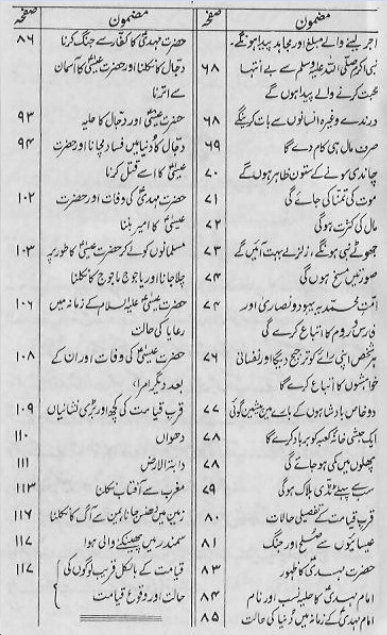 مضمون صفحہ
اجر لینے والے مبلغ اور مجاہد پیدا ہونگے۔
نبی اکرم صلی اللہ علیہ وسلم سے بے انتہا ۶۸
محبت کرنے والے پیدا ہوں گے
درندے وغیرہ انسانوں سے بات کرینگے ۶۸
صرف مال ہی کام دے گا ۶۹
چاندی سونے کے ستون ظاہر ہوں گے ۷۰
موت کی تمنا کی جائے گی ۷۱
مال کی کثرت ہوگی ۷۲
جھوٹے نبی ہونگے، زلزلے بہت آئیں گے ۷۳
صورتیں مسخ ہوں گی ۷۴
امت محمدیہ یہود و نصاریٰ اور ۷۴
فارس و روم کا اتباع کرے گی
ہر شخص اپنی رائے کو ترجیح دیگا اور نفسانی ۷۶
خواہشوں کا اتباع کرے گا
دو خاص بادشاہوں کے بارے میں پیشین گوئی ۷۷
ایک حبشی خانہ کعبہ کو برباد کرے گا ۷۸
پھلوں میں کمی ہو جائے گی ۷۸
سب سے پہلے ٹڈی ہلاک ہوگی ۷۹
قرب قیامت کے تفصیلی حالات ۸۰
عیسائیوں سے صلح اور جنگ ۸۱
حضرت مہدی کا ظہور ۸۳
امام مہدی کا حلیہ نسب اور نام ۸۴
امام مہدی کے زمانہ میں دنیا کی حالت ۸۵
مضمون صفحہ
حضرت مہدی کا کفار سے جنگ کرنا ۸۶
دجال کا نکلنا اور حضرت عیسیٰ کا آسمان
سے اترنا
حضرت عیسیٰ اور دجال کا حلیہ ۹۳
دجال کا دنیا میں فساد مچانا اور حضرت ۹۴
عیسیٰ کا اسے قتل کرنا
حضرت مہدی کی وفات اور حضرت ۱۰۲
عیسیٰ کا امیر بننا
مسلمانوں کو لے کر حضرت عیسیٰ کا طور پہ ۱۰۳
چلا جانا اور یاجوج ماجوج کا نکلنا
حضرت عیسیٰ علیہ السلام کے زمانہ میں ۱۰۶
رعایا کی حالت
حضرت عیسیٰ کی وفات اور ان کے ۱۰۸
بعد دیگر امراء
قرب قیامت کی کچھ اور بڑی نشانیاں ۱۰۹
دھواں ۱۱۰
دابۃ الارض ۱۱۱
مغرب سے آفتاب نکلنا ۱۱۳
زمین میں دھنس جانا، یمن سے آگ کا نکلنا ۱۱۶
سمندر میں پھینکنے والی ہوا ۱۱۷
قیامت کے بالکل قریب لوگوں کی ۱۱۷
حالت اور وقوع قیامت